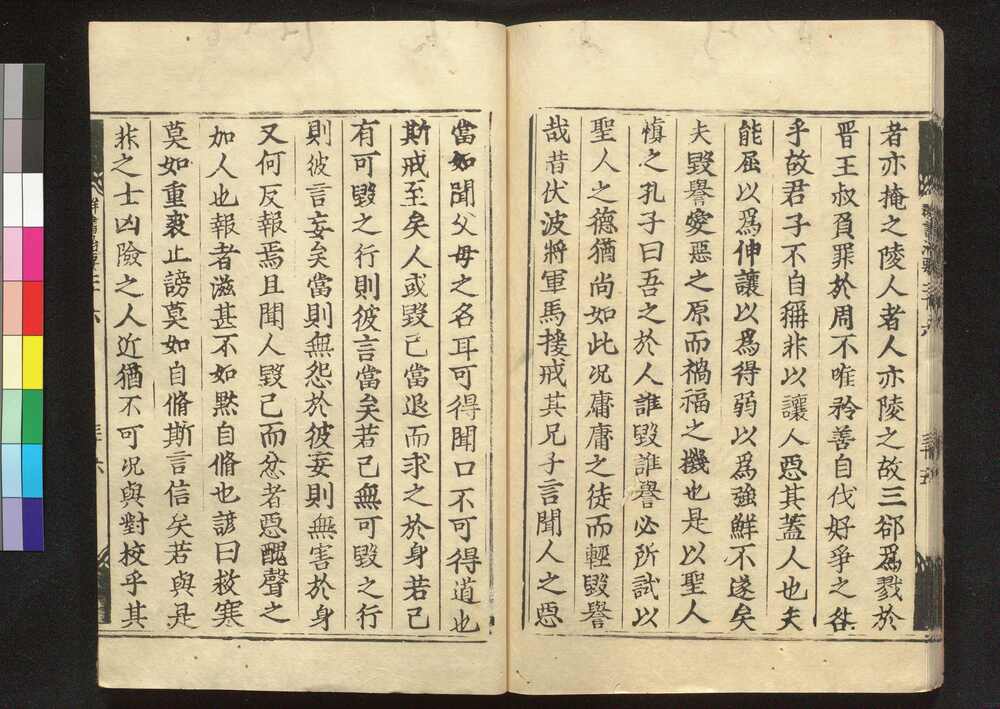 者亦掩之陵人者人亦陵之故三郤爲戮於
晋王叔負罪於周不唯矜善自伐好爭之咎
乎故君子不自稱非以讓人惡其蓋人也夫
能屈以爲伸讓以爲得弱以爲強鮮不遂矣
夫毀譽愛惡之原而禍福之機也是以聖人
慎之孔子曰吾之於人誰毀誰譽必所試以
聖人之德猶尚如此况庸庸之徒而輕毀譽
哉昔伏波將軍馬援戒其兄子言聞人之惡
當如聞父母之名耳可得聞口不可得道也
斯戒至矣人或毀己當退而求之於身若己
有可毀之行則彼言當矣若己無可毀之行
則彼言妄矣當則無怨於彼妄則無害於身
又何反報焉且聞人毀己而忿者惡醜聲之
加人也報者滋甚不如默自脩也諺曰救寒
莫如重裘止謗莫如自脩斯言信矣若與是
非之士凶險之人近猶不可况與對校乎其
群書治要二十六